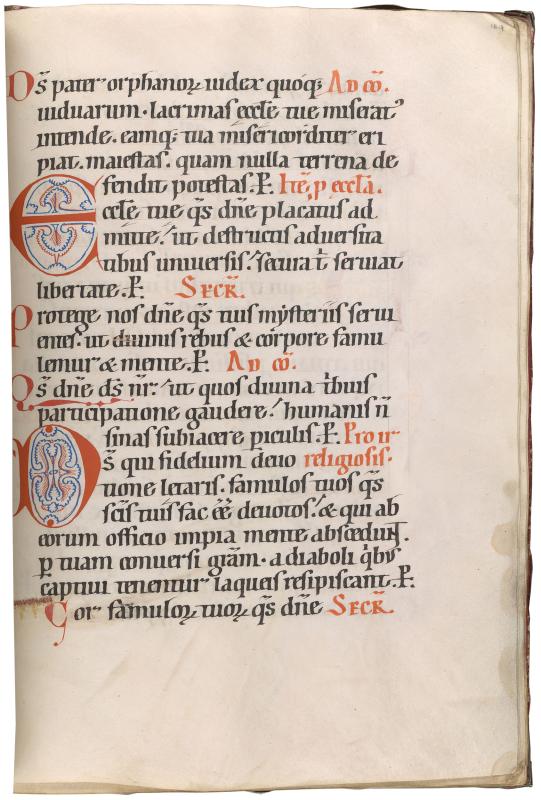 Ds̄ pater orphanoꝝ iudex quoqꝫ Ad cō.
uiduarum · lacrimas eccl̄e tue miserat᾽
intende . eamqꝫ tua misericorditer eri
piat . maiestas . quam nulla terrena de
fendit potestas . P̄. Itē, p eccl̄a.
Eccl̄e tue qs̄ dn̄e placatus ad
mitte.᾽ ut destructis aduersita
tibus uniuersis.᾽ secura t̄ seruiat
libertate . P̄. Secr̄.
Protege nos dn̄e qs̄ tuis mẏsteriis serui
entes . ut diuinis rebus & corpore famu
lemur & mente . P̄. Ad cō.
Qs̄ dn̄e ds̄ nr̄.᾽ ut quos diuina tͥbuis
participatione gaudere.᾽ humanis n̄
sinas subiacere piculis . P̄. Pro ir
Ds̄ qui fidelium deuo religiosis .
tione letaris . famulos tuos qs̄
scīs tuis fac eē deuotos.᾽ & qui ab
eorum officio impia mente abscedūt .
ꝑ tuam conuersi gr̄am . a diaboli qͥbus
captiui tenentur laqueis resipiscant . P̄.
Cor famuloꝝ tuoꝝ qs̄ dn̄e Secr̄.